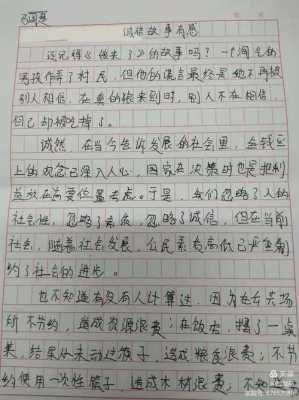 诚信故事有感
还记得《狼来了》的故事吗？一个淘气的
男孩作弄了村民，但他的谎言最终是他不再被
别人相信，在真的狼来到时，别人不在相信，
自己却被吃掉了。
诚然，在当今经济发展的社会里，金钱至
上的观念已深入人心，国家在决策时也是把利
益放在首要位置考虑。于是，我们忽略了人的
社会性，忽略了素质，忽略了诚信，但在当前
社会，随着社会发展，公民素质高低已严重制
约了社会的进步。
也不知道有没有人计算过，因为在公共场
所不节约，造成资源浪费；在饭店，摆了一桌
菜，结果从未动过筷子，造成粮食浪费；不节
约使用一次性筷子，造成木材浪费；不知